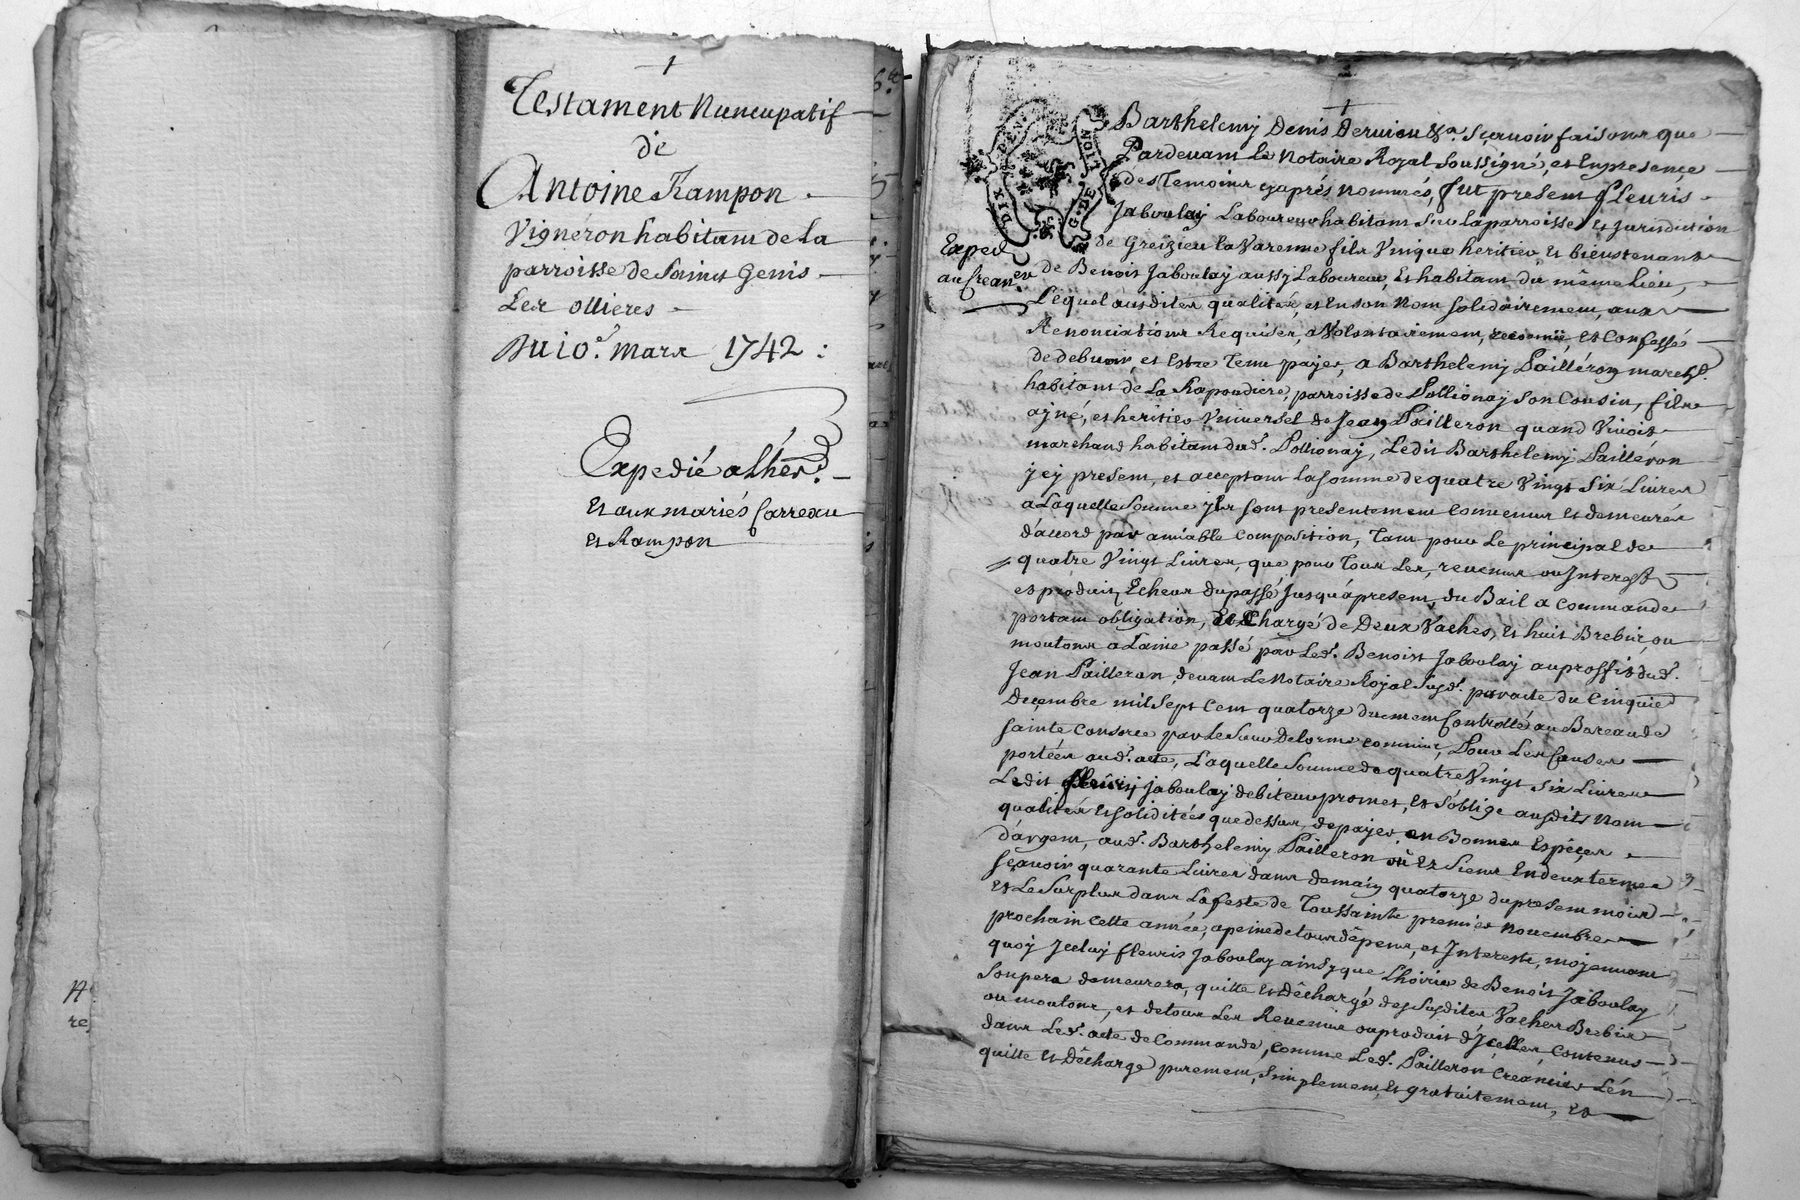 Testament Nuncupatif
de
Antoine Rampon
Vignéron habitant de la
parroisse de Saint Genis
Les ollieres
Du 10e. Mars 1742 :
Expedié a lhér.
Et aux mariés Carreau
Et Rampon
re
Barthelemy Denis Dervieu &a. Sçavoir faisons que
Pardevant Le Notaire Royal Soussigné, et En presence
des Temoins cy aprés nommés, fut present fleuris
Jaboulay Laboureur habitant Sur la parroisse et jurisdiction
de Greizieu la Varenne fils Vnique heritier, Et bienstenant
Exped
au Crean.er
de Benoist Jaboulay aussy Laboureur, Et habitant du même Lieu,
Lequel ausdites qualités, et En son Nom Solidairement, aux
Renonciations Requises, a Volontairement, reconnu, Et Confessé
de debvoir, et Estre Tenu payer, a Barthelemy Pailléron march.d
habitant de La Rapoudiere, parroisse de Pollionay Son Cousin, fils
ayné, et heritier Vniversel de Jean Pailleron quand Vivoit
marchand habitant dud. Pollionay, Ledit Barthelemy Pailléron
jcy present, et acceptant La somme de quatre Vingt Six Livres
a Laquelle Somme jls sont presentement Convenus Et demeurés
d'accord par amiable Composition, Tant pour Le principal de
quatre Vingt Livres, que pour Tous Les, revenus ou Interests
et produits Echeus du passé Jusqu'á present, du Bail a Commande
portant obligation, Et Chargé de Deux Vaches, Et huit Brebis, ou
moutons a Laine passé par Led. Benoist Jaboulay au proffit dud.
Jean Pailleron, devant Le Notaire Royal Susd. par acte du Cinquie
Decembre mil Sept Cent quatorze duement Controllé au Bureau de
Sainte Consorce par Le Sieur Delorme commis, Pour Les Causes
portées aud. acte, Laquelle Somme de quatre Vingt Six Livres
Ledit fleury Jaboulay debiteur promet, Et S'oblige ausdits Nom
qualités Et solidités que dessus, de payer en Bonnes Espéces
d'argent, aud. Barthelemy Pailleron ou Es Siens En deux termes
Sçavoir quarante Livres dans demain quatorze du present mois
Et Le Surplus dans La feste de Toussaints premier Novembre
prochain Cette année, a peine de tous dêpens, et Interests, moyennant
quoy Jceluy fleuris Jaboulay ainsy que L'hoirie de Benoist Jaboulay
Son pere demeurera, quitte Et Dêchargé des Susdites Vaches Brebis
ou moutons, et de tous Les Revenus ou produits d'Jcelles, Contenus
dans Led. acte de Commande, comme Led. Pailleron Creancier L'en
quitte Et Dêcharge purement, Simplement, Et gratuitement, Et